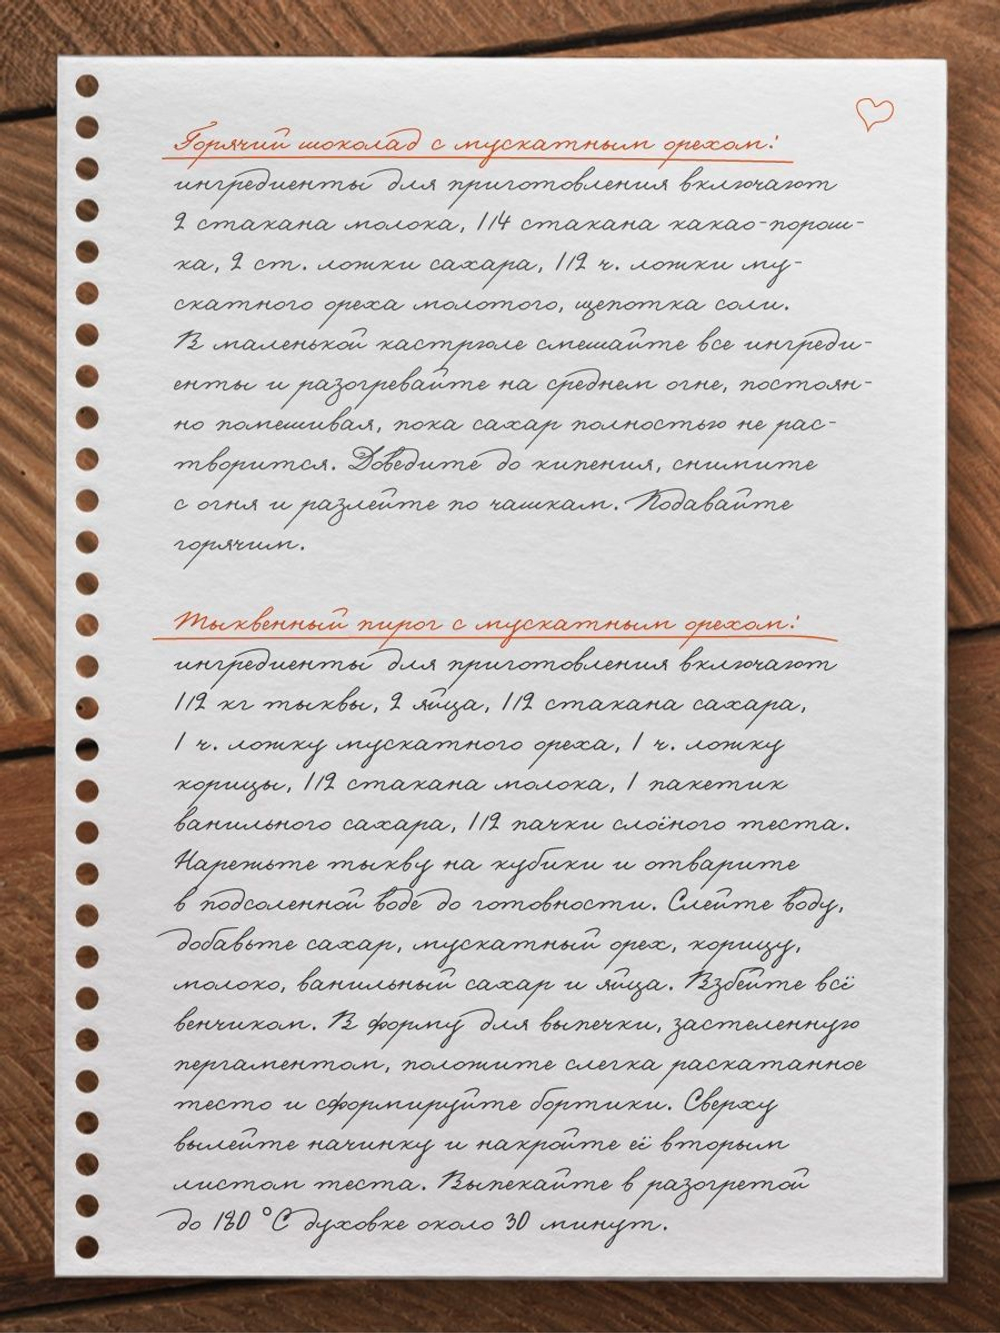 Горячий шоколад с мускатным орехом:
ингредиенты для приготовления включают
2 стакана молока, 1/4 стакана какао-порош-
ка, 2 ст. ложки сахара, 1/2 ч. ложки му-
скатного ореха молотого, щепотка соли.
В маленькой кастрюле смешайте все ингреди-
енты и разогревайте на среднем огне, постоян-
но помешивая, пока сахар полностью не рас-
творится. Доведите до кипения, снимите
с огня и разлейте по чашкам. Подавайте
горячим.
Тыквенный пирог с мускатным орехом:
ингредиенты для приготовления включают
1/2 кг тыквы, 2 яйца, 1/2 стакана сахара,
1 ч. ложку мускатного ореха, 1 ч. ложку
корицы, 1/2 стакана молока, 1 пакетик
ванильного сахара, 1/2 пачки слоёного теста.
Нарежьте тыкву на кубики и отварите
в подсоленной воде до готовности. Слейте воду,
добавьте сахар, мускатный орех, корицу,
молоко, ванильный сахар и яйца. Взбейте всё
венчиком. В форму для выпечки, застеленную
пергаментом, положите слегка раскатанное
тесто и сформируйте бортики. Сверху
вылейте начинку и накройте её вторым
листом теста. Выпекайте в разогретой
до 180 °С духовке около 30 минут.